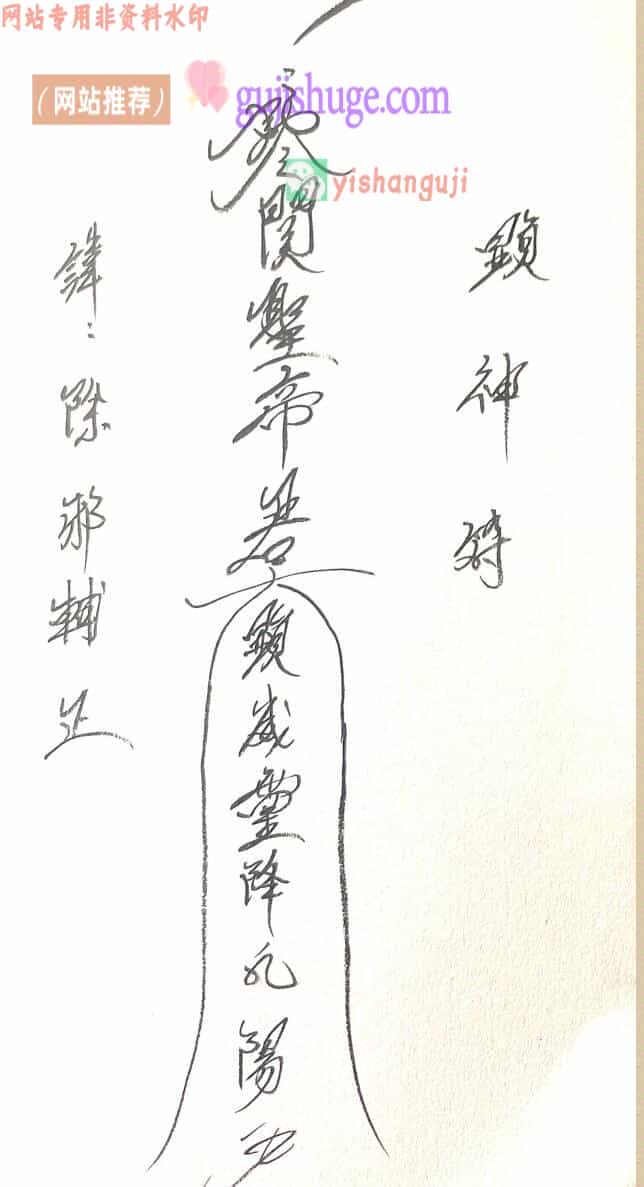 网站专用非资料水印
（网站推荐）
gujishuge.com
yishanguji
顯神符
關聖帝君
顯威靈降九陽
諱：除邪輔正